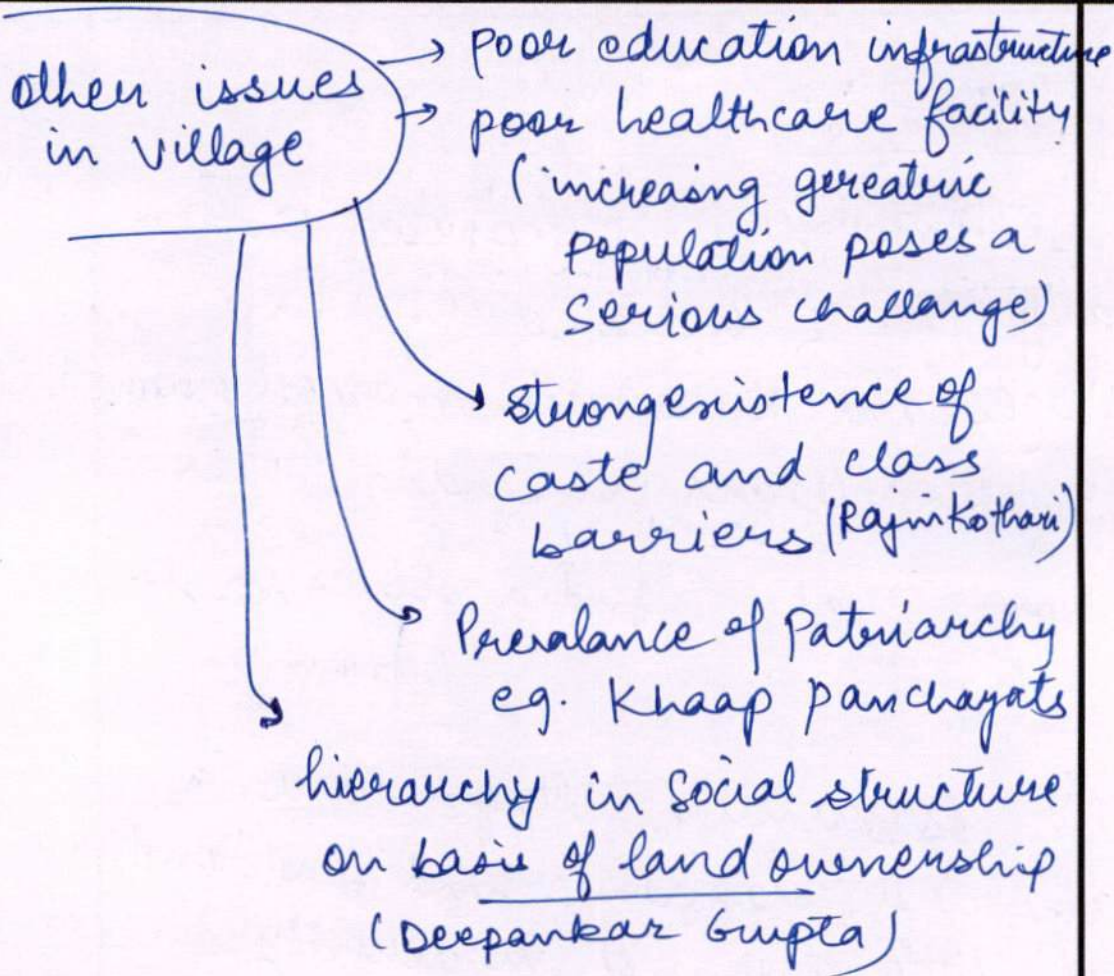 other issues
in village
→ poor education infrastructure
→ poor healthcare facility
(increasing gereatric
population poses a
serious challange)
strong existence of
caste and class
barriers (Rajni Kothari)
Prevalance of Patriarchy
eg. Khaap panchayats
hierarchy in social structure
on basis of land ownership
(Deepankar Gupta)